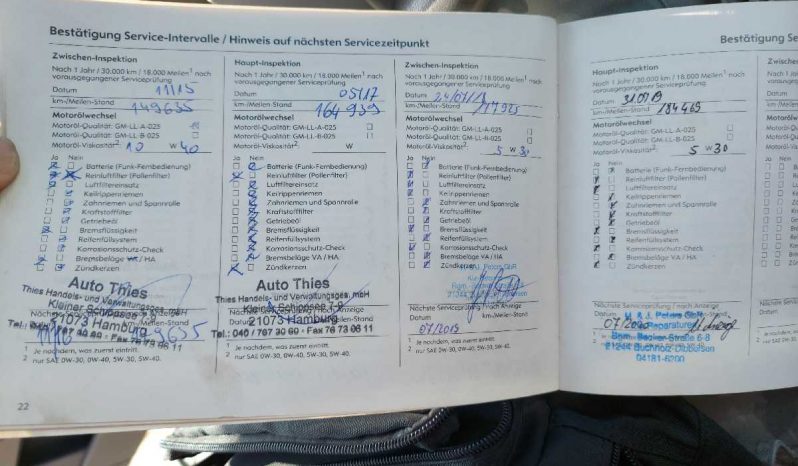 Bestätigung Service-Intervalle / Hinweis auf nächsten Servicezeitpunkt
Zwischen-Inspektion
Nach 1 Jahr / 30.000 km / 18.000 Meilen¹ nach
vorausgegangener Serviceprüfung
Datum 11/15
km-/Meilen-Stand 149635
Motorölwechsel
Motoröl-Qualität: GM-LL-A-025
Motoröl-Qualität: GM-LL-B-025
Motoröl-Viskosität²: 10 W 40
Ja Nein
Batterie (Funk-Fernbedienung)
Reinluftfilter (Pollenfilter)
Luftfiltereinsatz
Keilrippenriemen
Zahnriemen und Spannrolle
Kraftstofffilter
Getriebeöl
Bremsflüssigkeit
Reifenfüllsystem
Korrosionsschutz-Check
Bremsbeläge VA / HA
Zündkerzen
Auto Thies
Thies Handels- und Verwaltungsges. mbH
Kleiner Schippsee
21073 Hamburg
Tel.: 040 / 767 30 69 - Fax 76 73 06 11
¹ Je nachdem, was zuerst eintritt.
² nur SAE 0W-30, 0W-40, 5W-30, 5W-40.
22
Haupt-Inspektion
Nach 1 Jahr / 30.000 km / 18.000 Meilen¹ nach
vorausgegangener Serviceprüfung
Datum 05/17
km-/Meilen-Stand 164 939
Motorölwechsel
Motoröl-Qualität: GM-LL-A-025
Motoröl-Qualität: GM-LL-B-025
Motoröl-Viskosität²: W
Ja Nein
Batterie (Funk-Fernbedienung)
Reinluftfilter (Pollenfilter)
Luftfiltereinsatz
Keilrippenriemen
Zahnriemen und Spannrolle
Kraftstofffilter
Getriebeöl
Bremsflüssigkeit
Reifenfüllsystem
Korrosionsschutz-Check
Bremsbeläge VA / HA
Zündkerzen
Auto Thies
Thies Handels- und Verwaltungsges. mbH
Kleiner Schippsee
21073 Hamburg
Tel.: 040 / 767 30 69 - Fax 76 73 06 11
¹ Je nachdem, was zuerst eintritt.
² nur SAE 0W-30, 0W-40, 5W-30, 5W-40.
Zwischen-Inspektion
Nach 1 Jahr / 30.000 km / 18.000 Meilen¹ nach
vorausgegangener Serviceprüfung
Datum
km-/Meilen-Stand
Motorölwechsel
Motoröl-Qualität: GM-LL-A-025
Motoröl-Qualität: GM-LL-B-025
Motoröl-Viskosität²: 5 W 30
Ja Nein
Batterie (Funk-Fernbedienung)
Reinluftfilter (Pollenfilter)
Luftfiltereinsatz
Keilrippenriemen
Zahnriemen und Spannrolle
Kraftstofffilter
Getriebeöl
Bremsflüssigkeit
Reifenfüllsystem
Korrosionsschutz-Check
Bremsbeläge VA / HA
Zündkerzen
Nächste Serviceprüfung / nach Anzeige
Datum km-/Meilen-Stand
07/2019
¹ Je nachdem, was zuerst eintritt.
² nur SAE 0W-30, 0W-40, 5W-30, 5W-40.
Bestätigung Se
Haupt-Inspektion
Nach 1 Jahr / 30.000 km / 18.000 Meilen¹ nach
vorausgegangener Serviceprüfung
Datum 31.07.19
km-/Meilen-Stand 184469
Motorölwechsel
Motoröl-Qualität: GM-LL-A-025
Motoröl-Qualität: GM-LL-B-025
Motoröl-Viskosität²: 5 W 30
Ja Nein
Batterie (Funk-Fernbedienung)
Reinluftfilter (Pollenfilter)
Luftfiltereinsatz
Keilrippenriemen
Zahnriemen und Spannrolle
Kraftstofffilter
Getriebeöl
Bremsflüssigkeit
Reifenfüllsystem
Korrosionsschutz-Check
Bremsbeläge VA / HA
Zündkerzen
Nächste Serviceprüfung / nach Anzeige
Datum km-/Meilen-Stand
07/2020
21244 Buchholz-Dibbersen
04181-6200
¹ Je nachdem, was zuerst eintritt.
² nur SAE 0W-30, 0W-40, 5W-30, 5W-40.